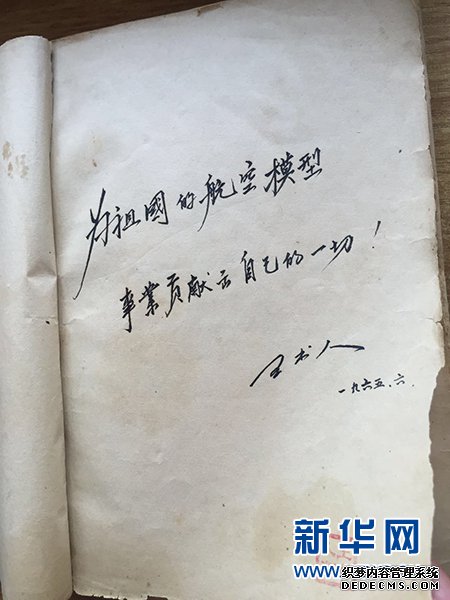 为祖國的航空模型
事業贡献出自己的一切！
王木人
一九六五.六.
新华网
织梦内容管理系统
DEDECMS.COM